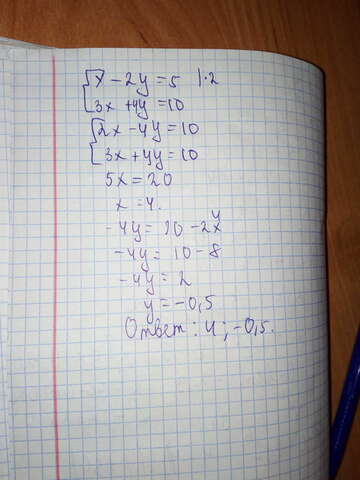 x - 2y = 5 | · 2
3x + 4y = 10
2x - 4y = 10
3x + 4y = 10
5x = 20
x = 4.
-4y = 10 - 2x
-4y = 10 - 8
-4y = 2
y = -0,5
Ответ: 4; -0,5.